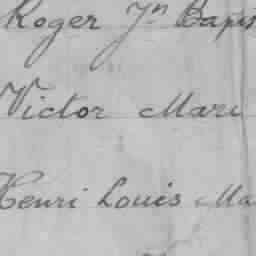 Roger Jn Bapt
Victor Mari
Henri Louis Ma